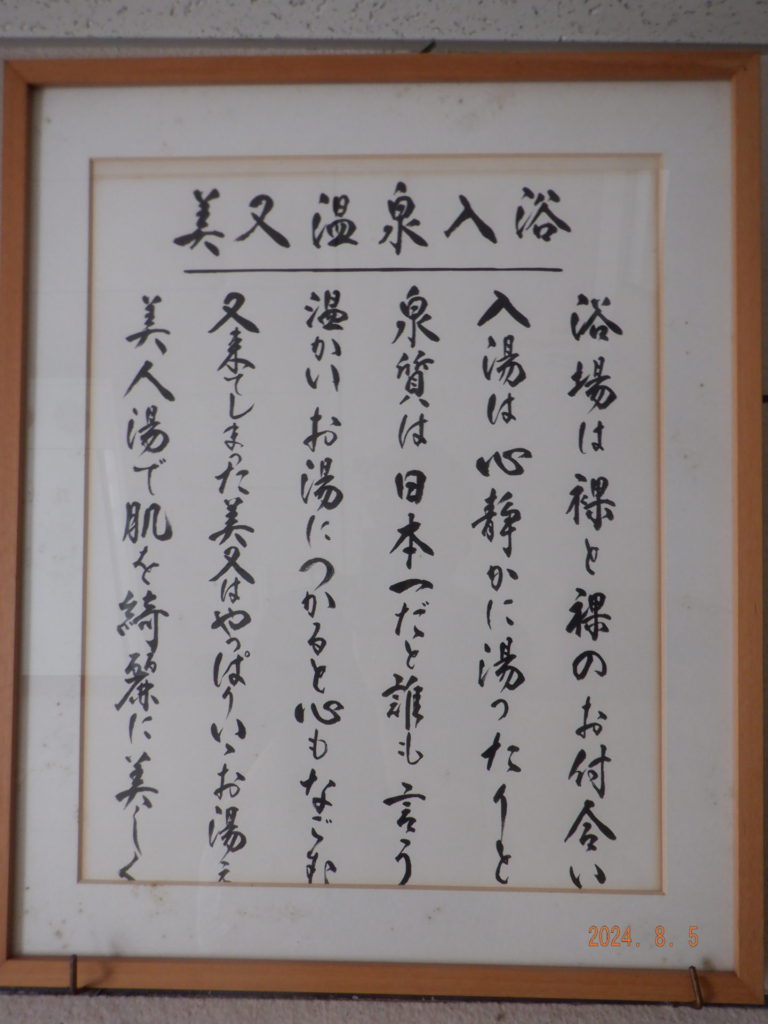 美又温泉入浴
浴場は裸と裸のお付合い
入湯は心静かに湯ったりと
泉質は日本一だと誰も言う
温かいお湯につかると心もなごむ
又来てしまった美又はやっぱりいゝお湯え
美人湯で肌を綺麗に美しく
2024. 8. 5